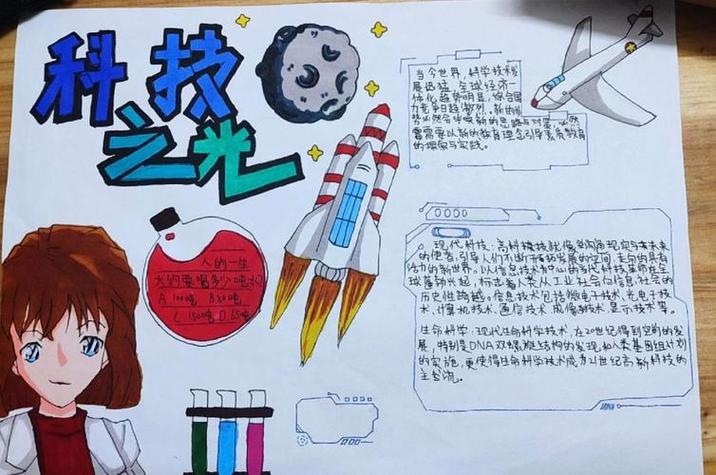 科技
之光
当今世界,科学技术发
展迅猛,全球经济一
体化趋势明显,综合国
力竞争日趋激烈,新的形
势必然会呼唤新的思路与对策,必然
需要以新的教育理念引导素质教育
的探索与实践。
人的一生
大约要喝多少吨水?
A.100吨 B.80吨
C.1500吨 D.65吨
现代科技:高科技就像沟通现实与未来
的使者,引导人们不断开拓发展的空间,走向具有
活力的新世界。以信息技术为中心的当代科技革命在全
球蓬勃兴起,标志着人类从工业社会向信息社会的
历史性跨越。信息技术包括微电子技术、光电子技
术、计算机技术、通信技术、成像技术、显示技术等。
生命科学:现代生命科学技术,在20世纪得到空前的发
展,特别是DNA双螺旋结构的发现,和人类基因组计划
的实施,更使得生命科学技术成为21世纪高新科技的
主流。